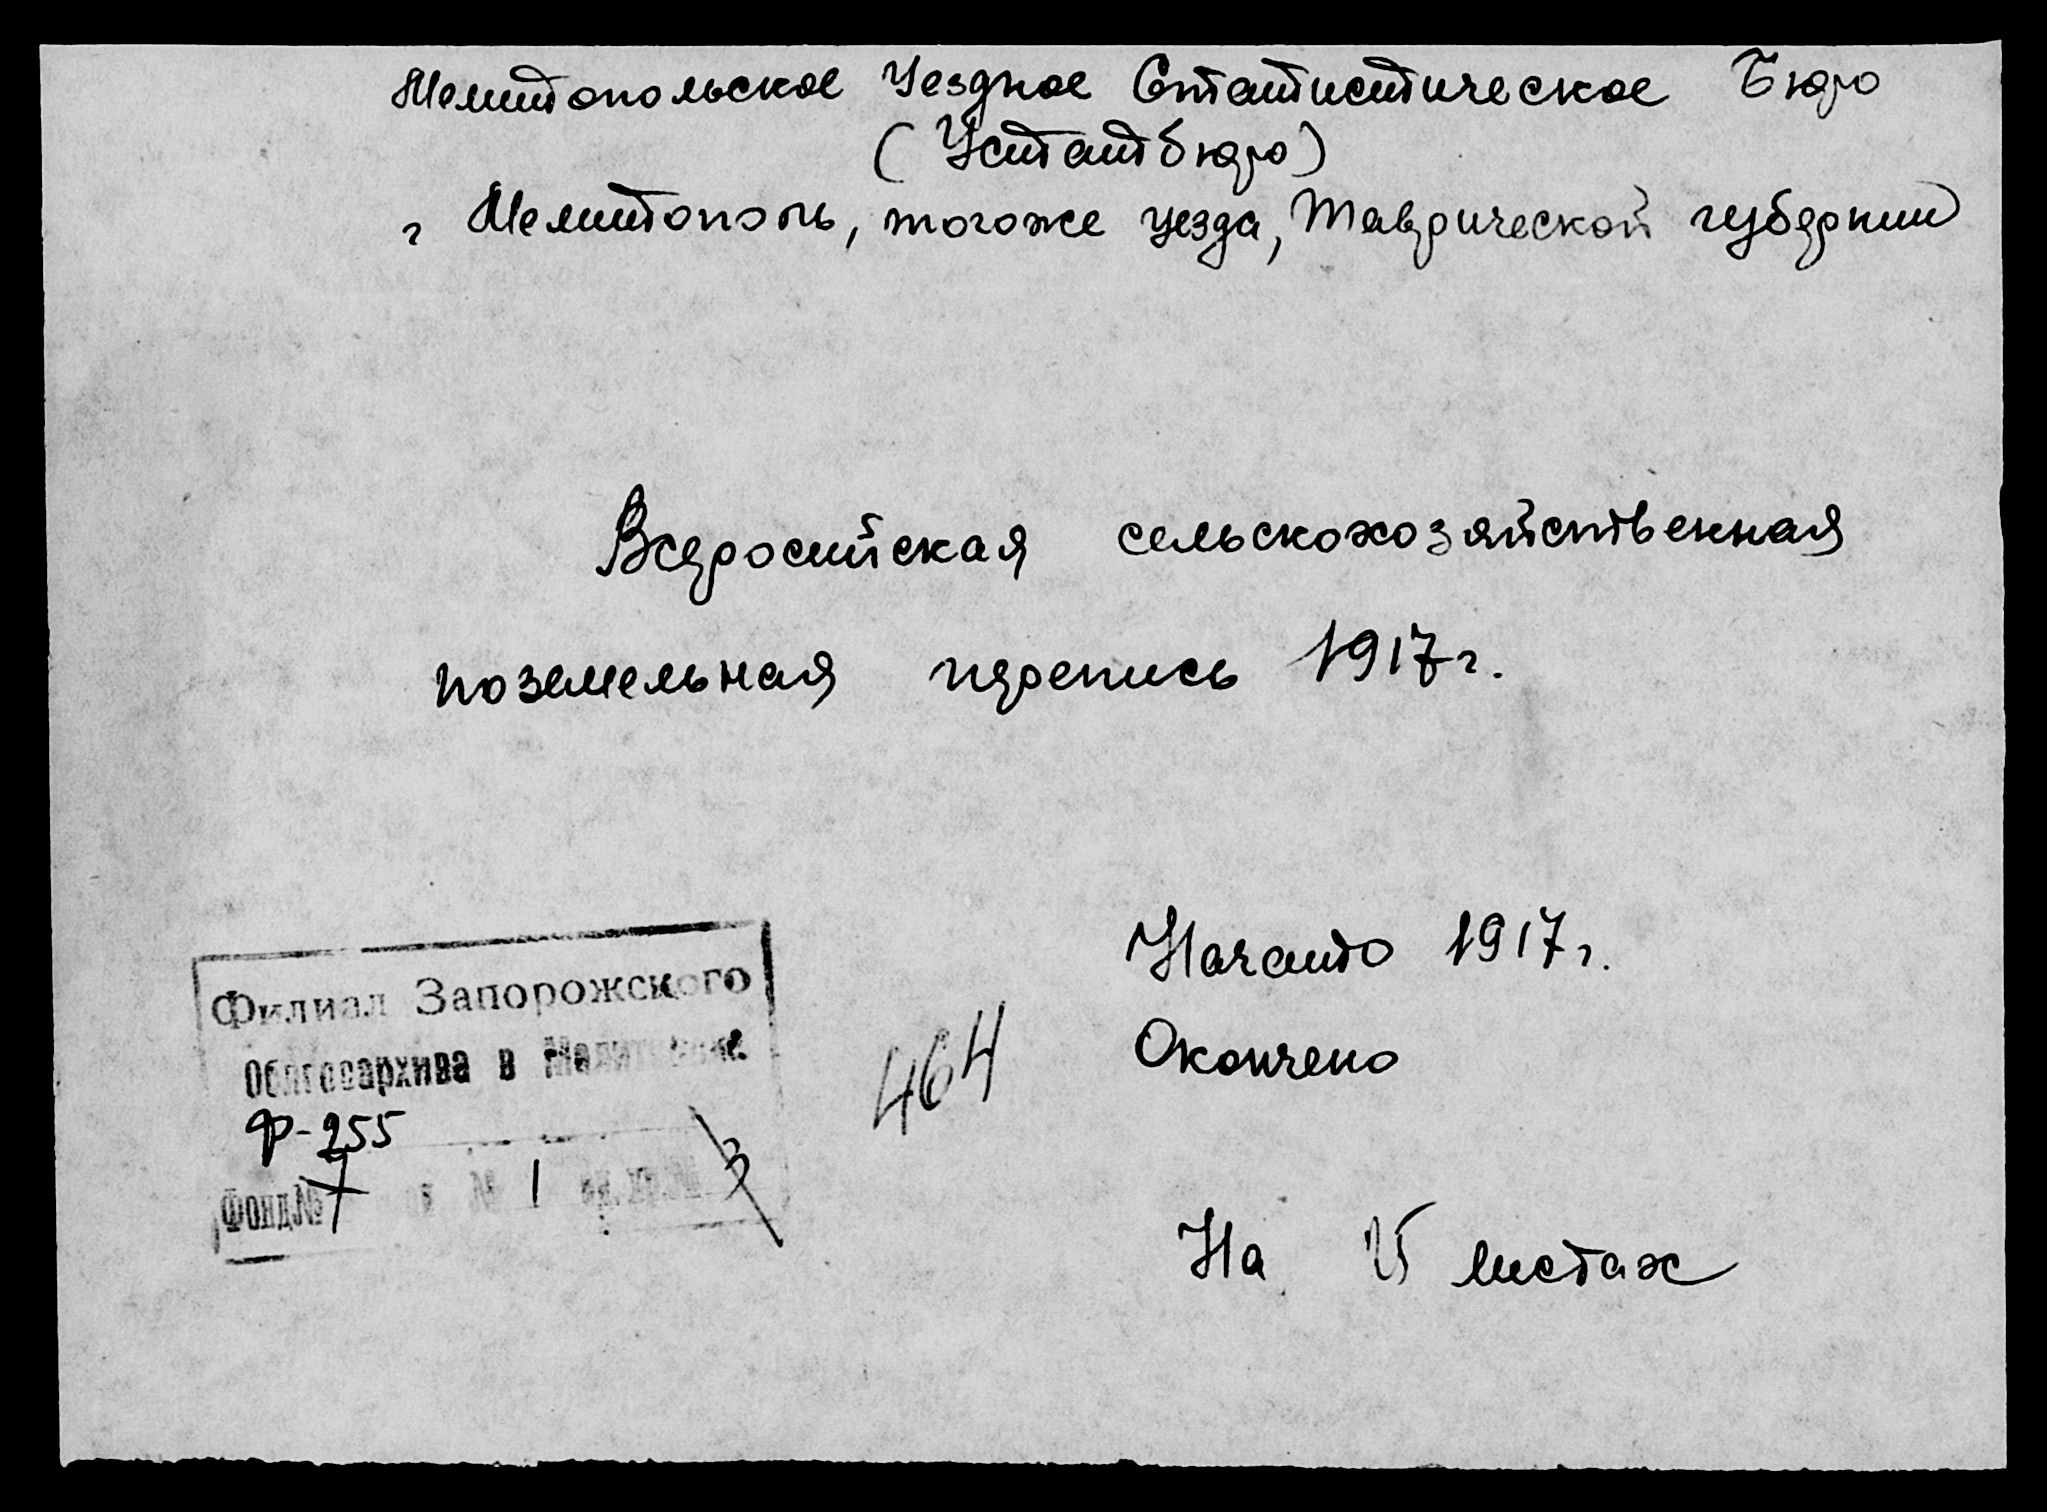 Мелитопольское Уездное Статистическое Бюро
(Устатбюро)
г Мелитополь, тогоже уезда, Таврической губернии
Всеросийская сельскохозяйственная
поземельная перепись 1917г.
Начато 1917г.
Окончено
464
На листах
Филиал Запорожского
Облгосархива в
Ф-255
Фонд № № 1 3